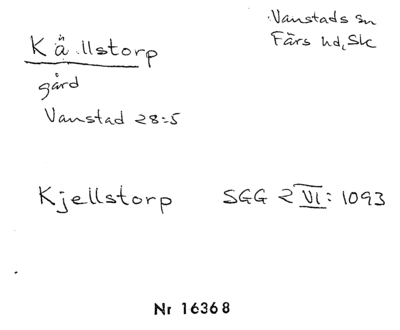 Vanstads sn
Färs hd, Sk
Källstorp
gård
Vanstad 28:5
Kjellstorp SGG 2 VI: 1093
Nr 16368